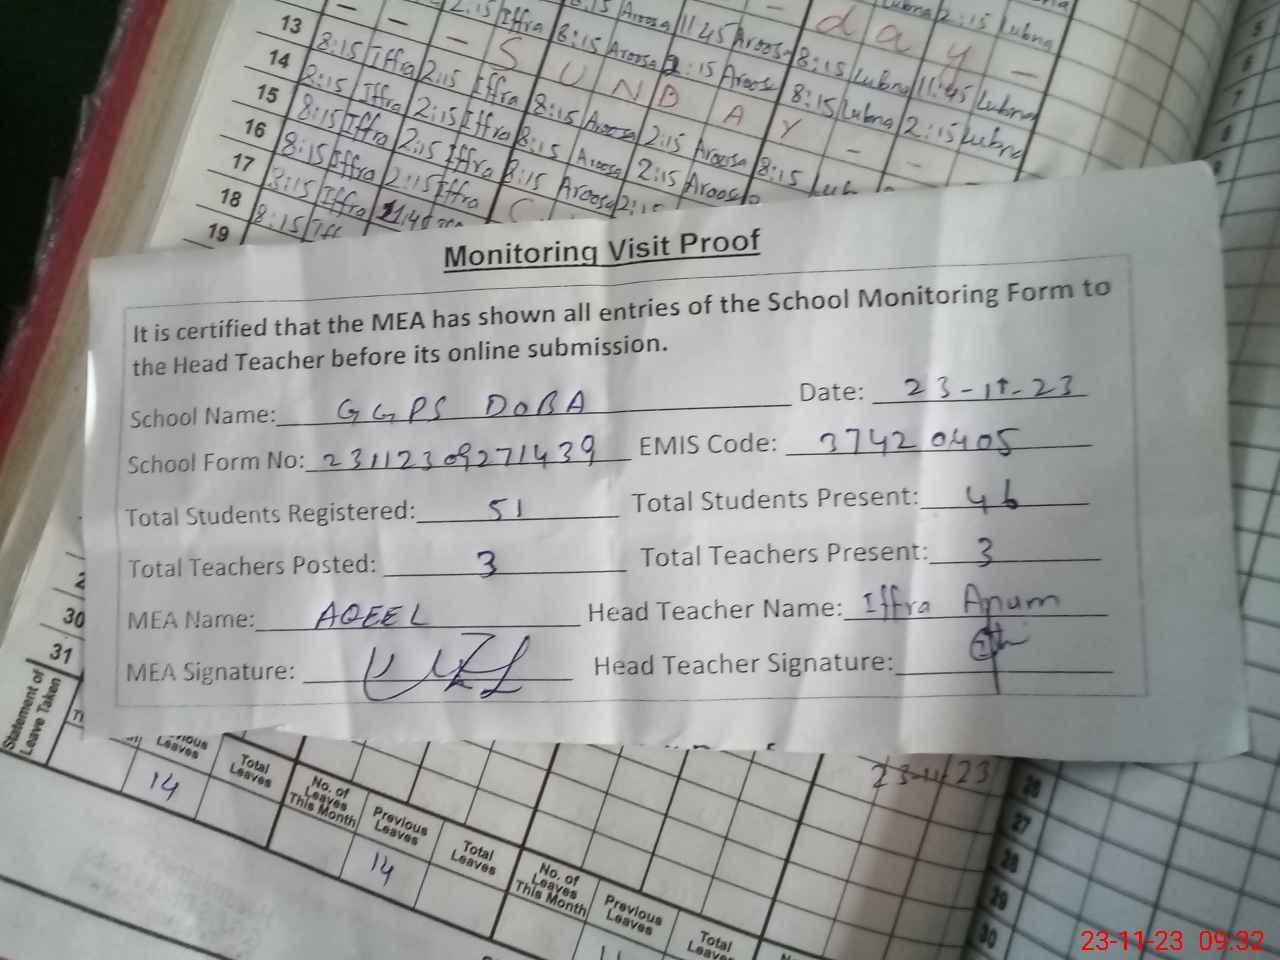 13 - - 2:15 Iffra 8:15 Aroosa 11:45 Aroosa 8:15 Lubna 2:15 Lubna
14 8:15 Iffra 2:15 Iffra
15 2:15 Iffra 2:15 Iffra 8:15 Aroosa 2:15 Aroosa
16 8:15 Iffra 2:15 Iffra 8:15 Aroosa 2:15 Aroosa 8:15
17 8:15 Iffra 2:15 Iffra 8:15 Aroosa
18 Iffra
19 8:15
S U N D A Y
d a y
Monitoring Visit Proof
It is certified that the MEA has shown all entries of the School Monitoring Form to
the Head Teacher before its online submission.
School Name: GGPS DOBA Date: 23-11-23
School Form No: 23112309271439 EMIS Code: 37420405
Total Students Registered: 51 Total Students Present: 46
Total Teachers Posted: 3 Total Teachers Present: 3
MEA Name: AQEEL Head Teacher Name: Iffra Anum
MEA Signature: Head Teacher Signature:
30
31
Statement of
Leave Taken
Leaves
14
Total
Leaves
No. of
Leaves
This Month
Previous
Leaves
14
Total
Leaves
No. of
Leaves
This Month
Previous
Leaves
Total
Leaves
23-11-23
26
27
28
29
30
23-11-23 09:32